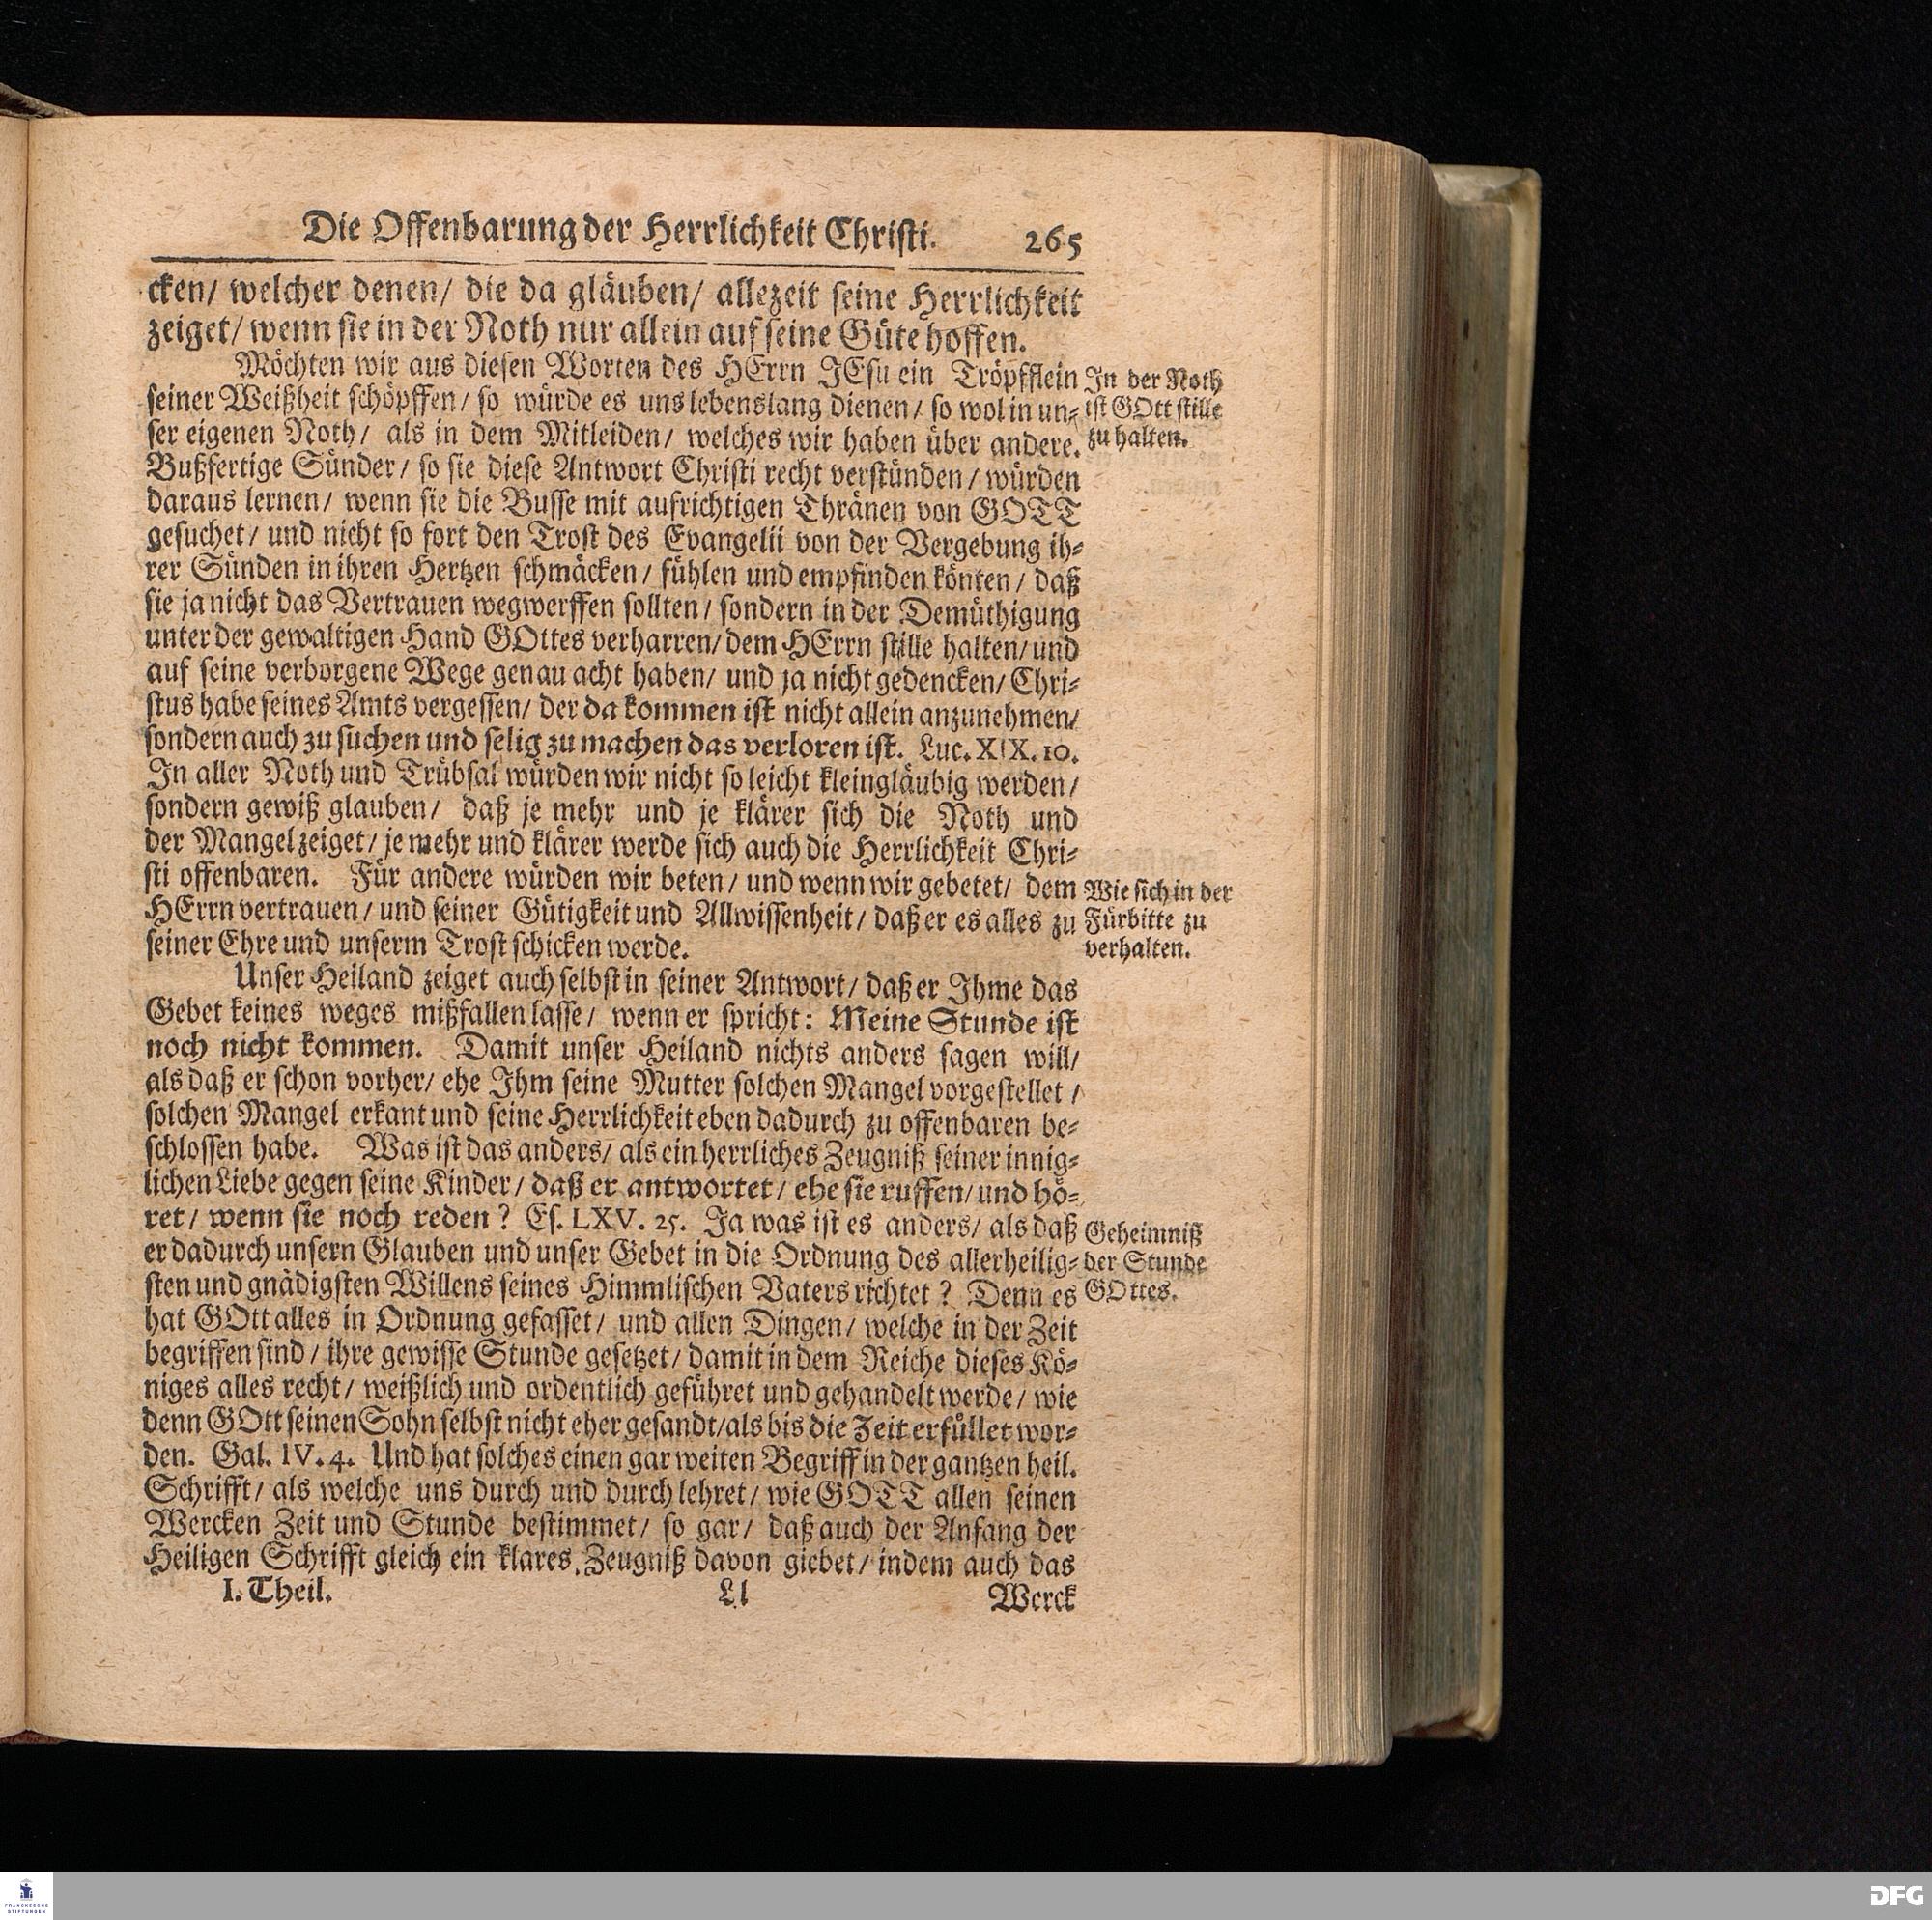 Die Offenbarung der Herrlichkeit Christi. 265
cken/ welcher denen/ die da gläuben/ allezeit seine Herrlichkeit
zeiget/ wenn sie in der Noth nur allein auf seine Güte hoffen.
Möchten wir aus diesen Worten des HErrn JEsu ein Tröpfflein
seiner Weißheit schöpffen/ so würde es uns lebenslang dienen/ so wol in un-
ser eigenen Noth/ als in dem Mitleiden/ welches wir haben über andere.
In der Noth
ist GOtt stille
zu halten.
Bußfertige Sünder/ so sie diese Antwort Christi recht verstünden/ würden
daraus lernen/ wenn sie die Busse mit aufrichtigen Thränen von GOTT
gesuchet/ und nicht so fort den Trost des Evangelii von der Vergebung ih-
rer Sünden in ihren Hertzen schmäcken/ fühlen und empfinden könten/ daß
sie ja nicht das Vertrauen wegwerffen sollten/ sondern in der Demüthigung
unter der gewaltigen Hand GOttes verharren/ dem HErrn stille halten/ und
auf seine verborgene Wege genau acht haben/ und ja nicht gedencken/ Chri-
stus habe seines Amts vergessen/ der da kommen ist nicht allein anzunehmen/
sondern auch zu suchen und selig zu machen das verloren ist. Luc. XIX. 10.
In aller Noth und Trübsal würden wir nicht so leicht kleingläubig werden/
sondern gewiß glauben/ daß je mehr und je klärer sich die Noth und
der Mangel zeiget/ je mehr und klärer werde sich auch die Herrlichkeit Chri-
sti offenbaren. Für andere würden wir beten/ und wenn wir gebetet/ dem
HErrn vertrauen/ und seiner Gütigkeit und Allwissenheit/ daß er es alles zu
seiner Ehre und unserm Trost schicken werde.
Wie sich in der
Fürbitte zu
verhalten.
Unser Heiland zeiget auch selbst in seiner Antwort/ daß er Ihme das
Gebet keines weges mißfallen lasse/ wenn er spricht: Meine Stunde ist
noch nicht kommen. Damit unser Heiland nichts anders sagen will/
als daß er schon vorher/ ehe Ihm seine Mutter solchen Mangel vorgestellet/
solchen Mangel erkant und seine Herrlichkeit eben dadurch zu offenbaren be-
schlossen habe. Was ist das anders/ als ein herrliches Zeugniß seiner innig-
lichen Liebe gegen seine Kinder/ daß er antwortet/ ehe sie ruffen/ und hö-
ret/ wenn sie noch reden? Es. LXV. 25. Ja was ist es anders/ als daß
er dadurch unsern Glauben und unser Gebet in die Ordnung des allerheilig-
sten und gnädigsten Willens seines Himmlischen Vaters richtet? Denn es
Geheimniß
der Stunde
GOttes.
hat GOtt alles in Ordnung gefasset/ und allen Dingen/ welche in der Zeit
begriffen sind/ ihre gewisse Stunde gesetzet/ damit in dem Reiche dieses Kö-
niges alles recht/ weißlich und ordentlich geführet und gehandelt werde/ wie
denn GOtt seinen Sohn selbst nicht eher gesandt/ als bis die Zeit erfüllet wor-
den. Gal. IV. 4. Und hat solches einen gar weiten Begriff in der gantzen heil.
Schrifft/ als welche uns durch und durch lehret/ wie GOTT allen seinen
Wercken Zeit und Stunde bestimmet/ so gar/ daß auch der Anfang der
Heiligen Schrifft gleich ein klares Zeugniß davon giebet/ indem auch das
I. Theil. Ll Werck
FRANCKESCHE
STIFTUNGEN
DFG